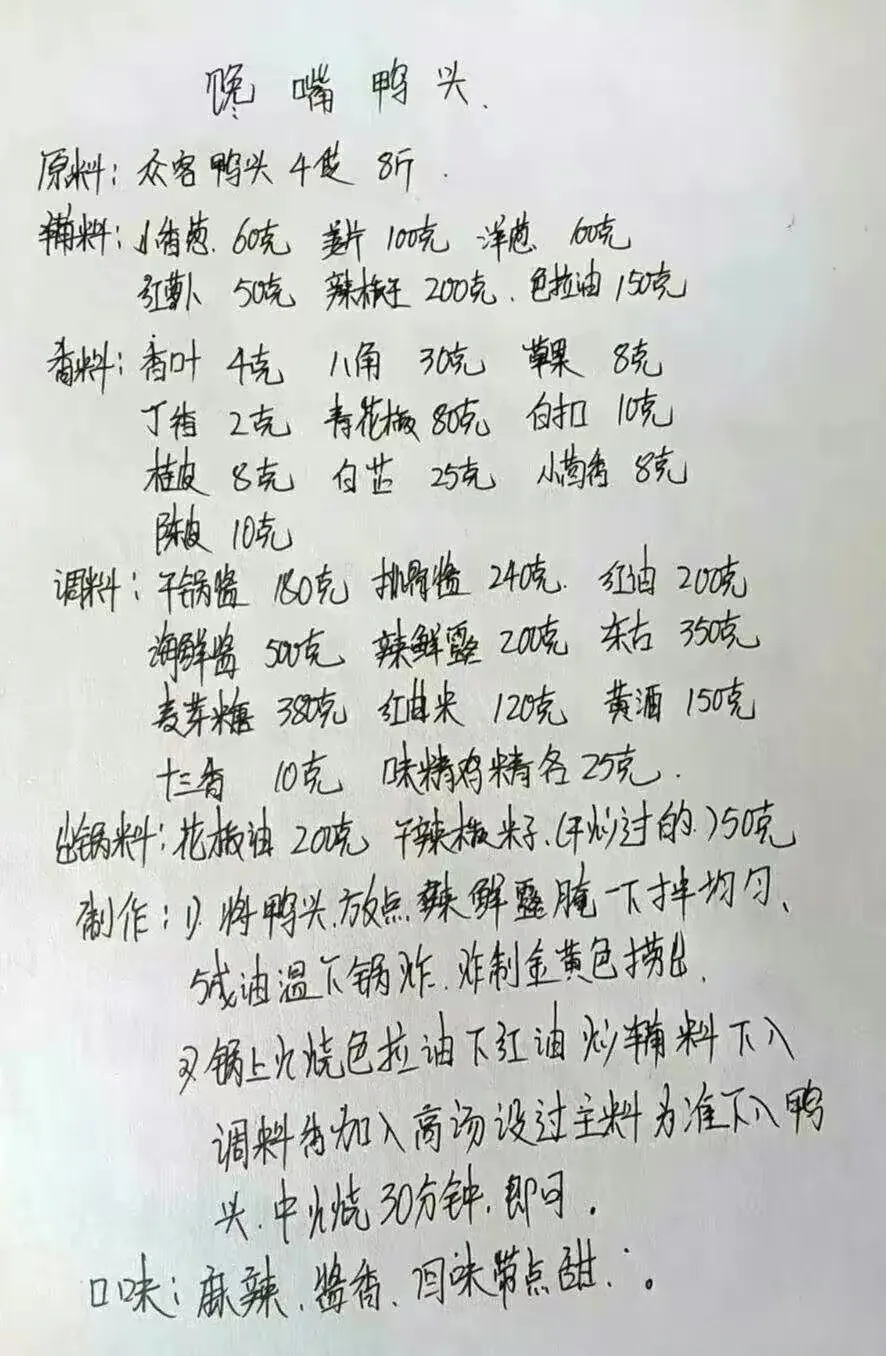 馋嘴鸭头.
原料: 众客鸭头 4袋 8斤.
辅料: 小香葱. 60克 姜片 100克 洋葱 100克
红萝卜 50克 辣椒王 200克. 色拉油 150克
香料: 香叶 4克 八角 30克 草果 8克
丁香 2克 青花椒 80克 白扣 10克
桂皮 8克 白芷 25克 小茴香 8克
陈皮 10克
调料: 干锅酱 180克 排骨酱 240克. 红油 200克
海鲜酱 500克 辣鲜露 200克 东古 350克
麦芽糖 380克 红曲米 120克 黄酒 150克
十三香 10克 味精鸡精各 25克.
出锅料: 花椒油 200克 干辣椒米子.(干炒过的.)50克
制作: 1). 将鸭头.放点.辣鲜露腌一下拌均匀、
5成油温下锅炸.炸制金黄色捞出.
2) 锅上火烧色拉油下红油炒辅料下入
调料香加入高汤没过主料为准下入鸭
头.中火烧30分钟.即可.
口味: 麻辣、酱香、回味带点甜.。